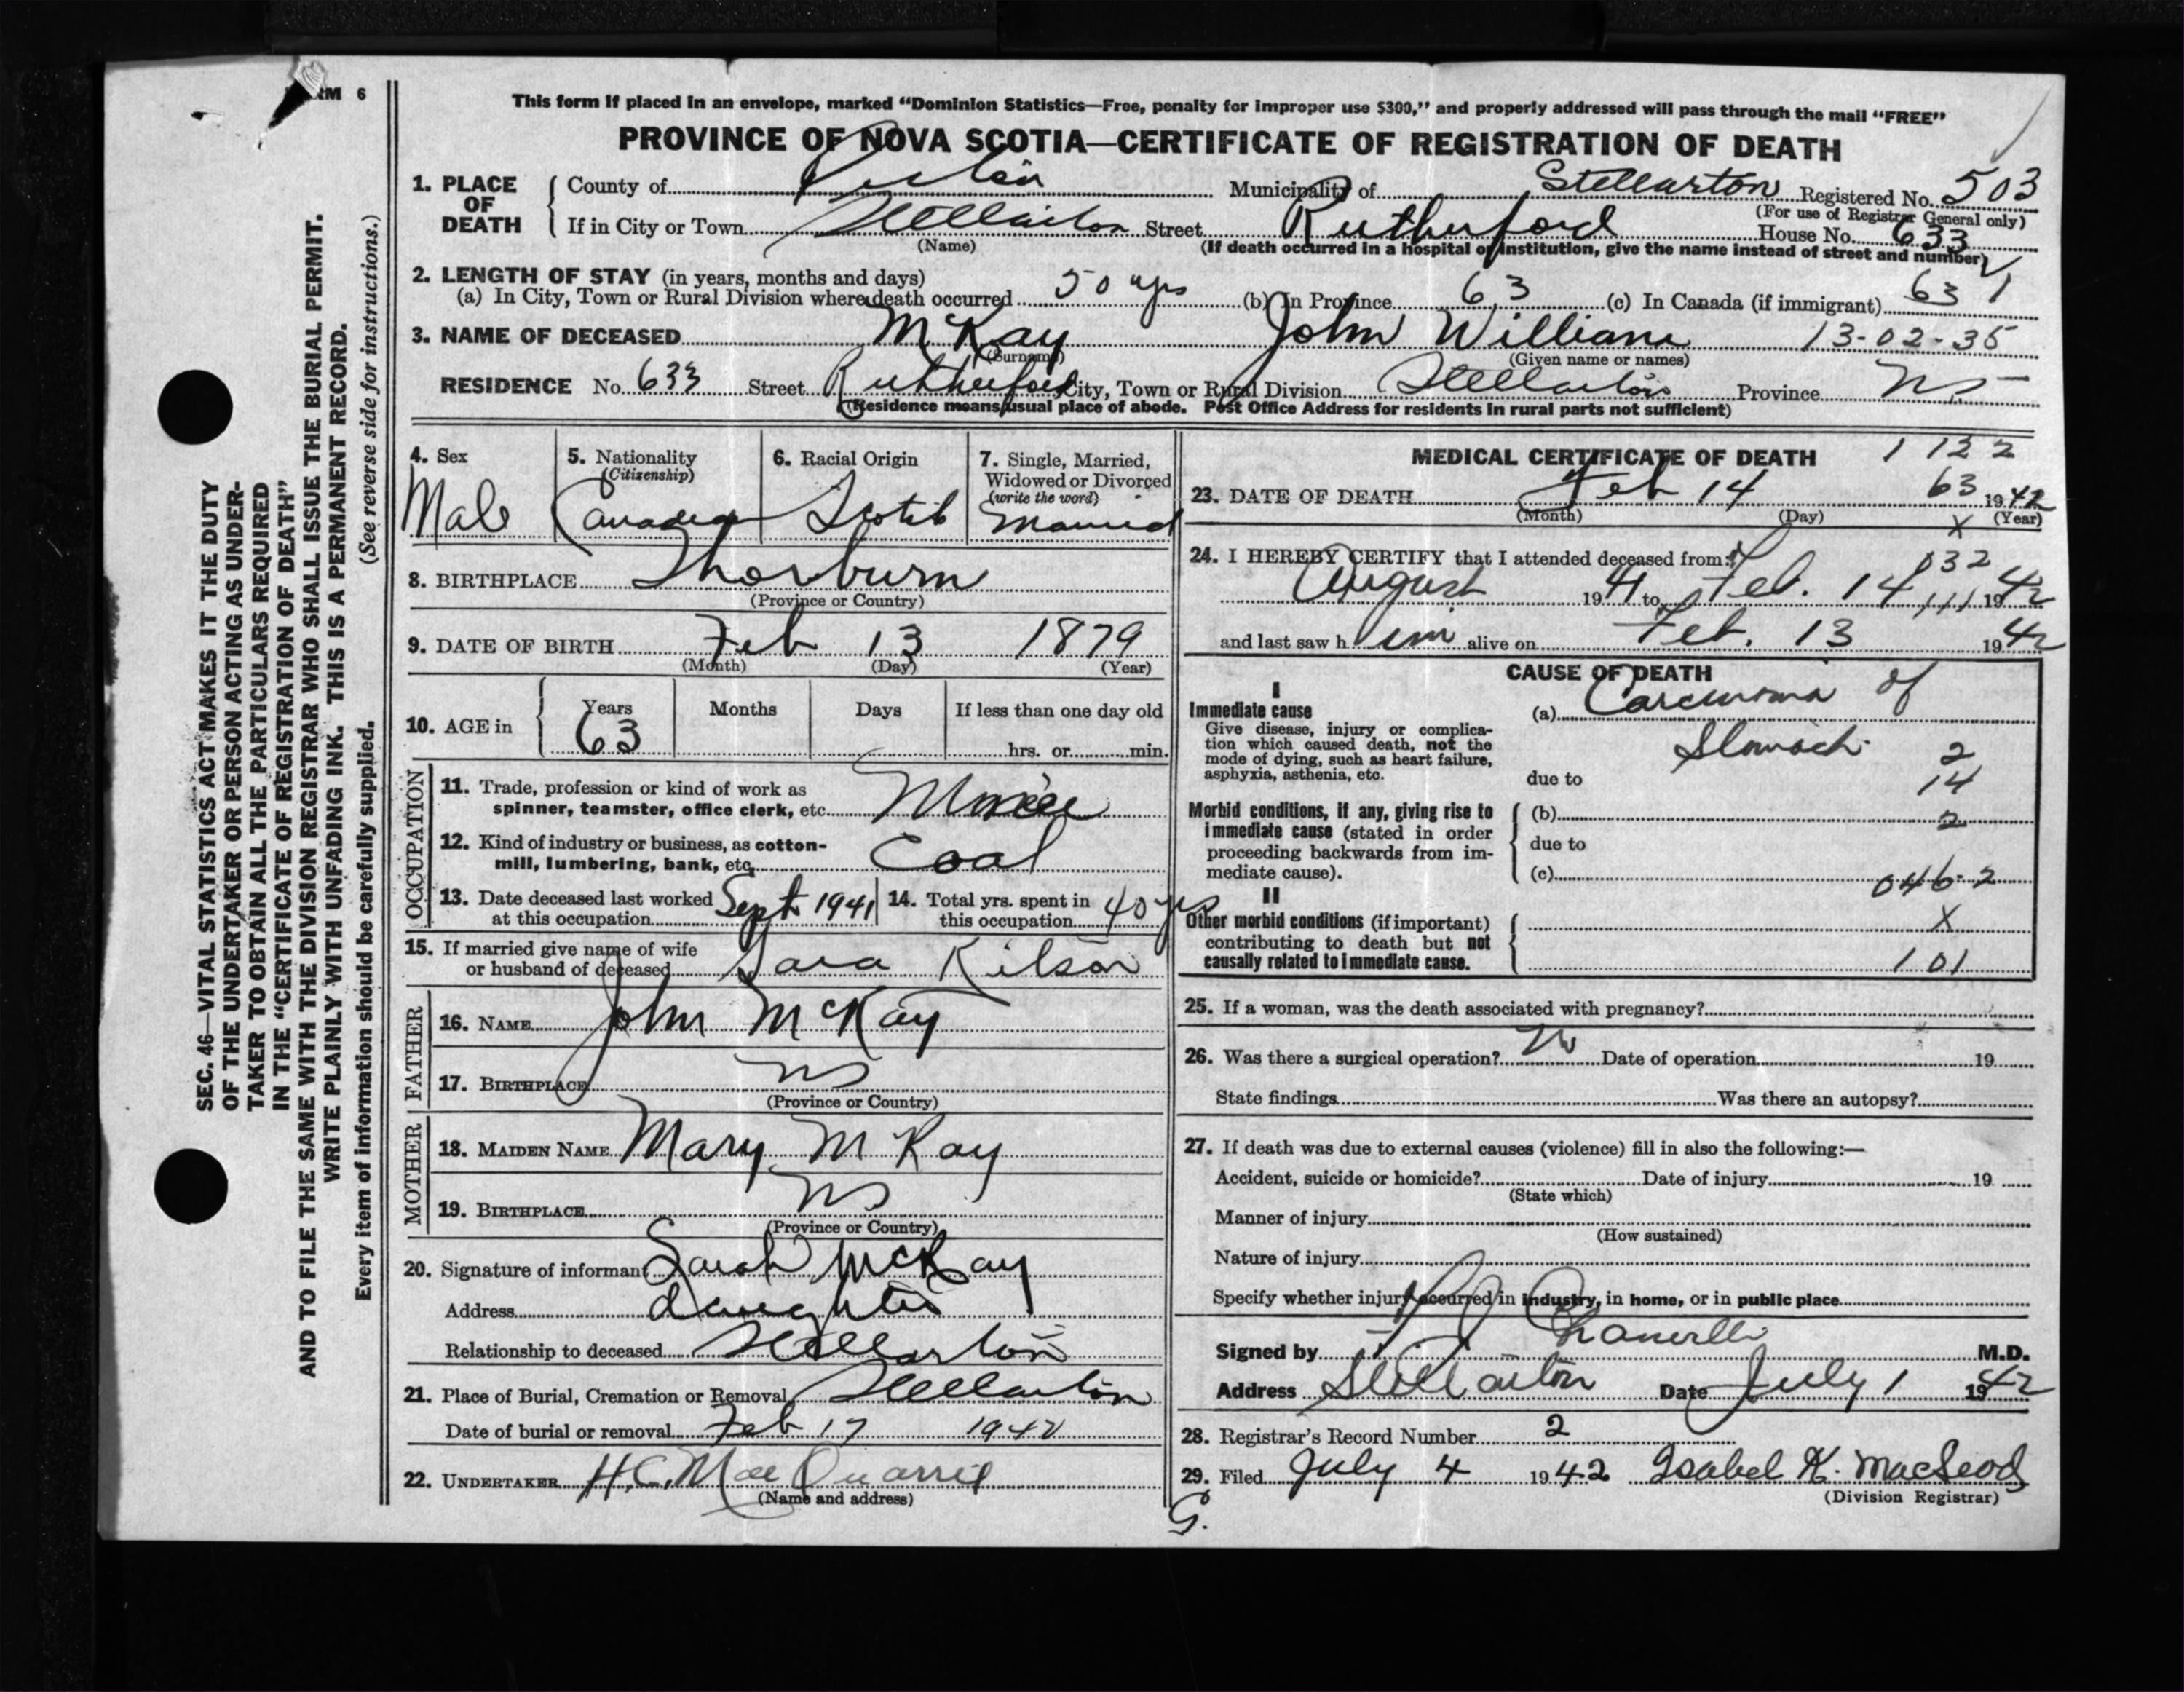 FORM 6
This form if placed in an envelope, marked “Dominion Statistics—Free, penalty for improper use $300,” and properly addressed will pass through the mail “FREE”
PROVINCE OF NOVA SCOTIA—CERTIFICATE OF REGISTRATION OF DEATH
1. PLACE OF DEATH
County of Pictou Municipality of Stellarton Registered No. 503
(For use of Registrar General only)
If in City or Town Stellarton Street Rutherford House No. 633
(Name) (If death occurred in a hospital or institution, give the name instead of street and number)
2. LENGTH OF STAY (in years, months and days)
(a) In City, Town or Rural Division where death occurred 50 yrs (b) In Province 63 (c) In Canada (if immigrant) 63 1
3. NAME OF DECEASED McKay John William 13-02-35
(Surname) (Given name or names)
RESIDENCE No. 633 Street Rutherford City, Town or Rural Division Stellarton Province NS
(Residence means usual place of abode. Post Office Address for residents in rural parts not sufficient)
4. Sex Male
5. Nationality (Citizenship) Canadian
6. Racial Origin Scotch
7. Single, Married, Widowed or Divorced (write the word) Married
8. BIRTHPLACE Thorburn
(Province or Country)
9. DATE OF BIRTH Feb 13 1879
(Month) (Day) (Year)
10. AGE in Years 63 Months Days If less than one day old
hrs. or min.
OCCUPATION
11. Trade, profession or kind of work as
spinner, teamster, office clerk, etc. Miner
12. Kind of industry or business, as cotton-
mill, lumbering, bank, etc. Coal
13. Date deceased last worked at this occupation Sept 1941
14. Total yrs. spent in this occupation 40 yrs
15. If married give name of wife
or husband of deceased Sara
FATHER
16. NAME John McKay
17. BIRTHPLACE NS
(Province or Country)
MOTHER
18. MAIDEN NAME Mary McKay
19. BIRTHPLACE NS
(Province or Country)
20. Signature of informant Sarah McKay
Address daughter
Relationship to deceased Stellarton
21. Place of Burial, Cremation or Removal Stellarton
Date of burial or removal Feb 17 1942
22. UNDERTAKER H.C. MacQuarrie
(Name and address)
MEDICAL CERTIFICATE OF DEATH 1 122
23. DATE OF DEATH Feb 14 63 1942
(Month) (Day) X (Year)
24. I HEREBY CERTIFY that I attended deceased from: 032
August 1941 to Feb. 14 111 1942
and last saw him alive on Feb. 13 1942
CAUSE OF DEATH
I
Immediate cause
Give disease, injury or complica-
tion which caused death, not the
mode of dying, such as heart failure,
asphyxia, asthenia, etc.
(a) Carcinoma of
Stomach 2
due to 14
Morbid conditions, if any, giving rise to
immediate cause (stated in order
proceeding backwards from im-
mediate cause).
(b) 2
due to
(c) 046-2
II
Other morbid conditions (if important)
contributing to death but not
causally related to immediate cause.
X
101
25. If a woman, was the death associated with pregnancy?
26. Was there a surgical operation? No Date of operation 19
State findings Was there an autopsy?
27. If death was due to external causes (violence) fill in also the following:—
Accident, suicide or homicide? Date of injury 19
(State which)
Manner of injury
(How sustained)
Nature of injury
Specify whether injury occurred in industry, in home, or in public place
Signed by M.D.
Address Stellarton Date July 1 1942
28. Registrar's Record Number 2
29. Filed July 4 1942 Isabel K. MacLeod
(Division Registrar)
G.
SEC. 46—VITAL STATISTICS ACT MAKES IT THE DUTY
OF THE UNDERTAKER OR PERSON ACTING AS UNDER-
TAKER TO OBTAIN ALL THE PARTICULARS REQUIRED
IN THE “CERTIFICATE OF REGISTRATION OF DEATH”
AND TO FILE THE SAME WITH THE DIVISION REGISTRAR WHO SHALL ISSUE THE BURIAL PERMIT.
WRITE PLAINLY WITH UNFADING INK. THIS IS A PERMANENT RECORD.
Every item of information should be carefully supplied. (See reverse side for instructions.)